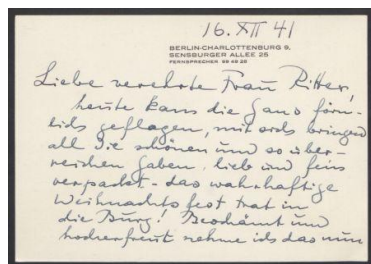 16. XII 41
BERLIN-CHARLOTTENBURG 9,
SENSBURGER ALLEE 25
FERNSPRECHER
Liebe verehrte Frau Ritter,
heute kam die Gans förm-
lich geflogen, mit sich bringend
all die schönen und so über-
reichen Gaben, lieb und fein
verpackt - das wahrhaftige
Weihnachtsfest trat in
die Burg! Beschämt und
hocherfreut nehme ich das nun